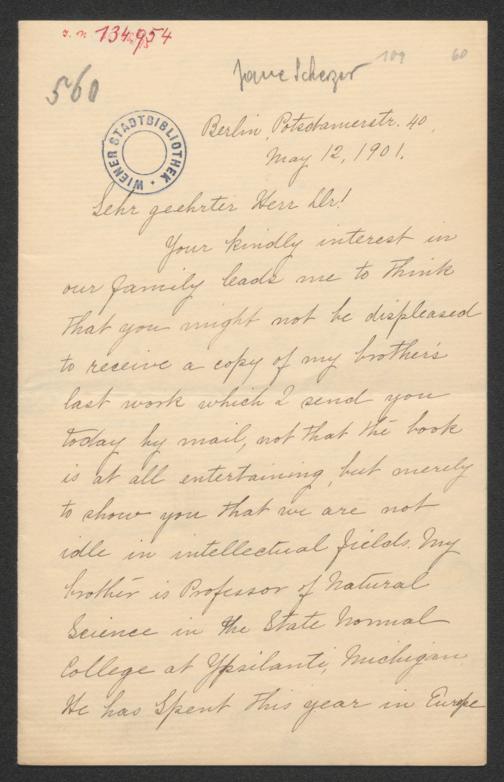 134954
109
60
Jane Scherzer
560
WIENER STADTBIBLIOTHEK
Berlin, Potsdamerstr. 40.
May 12, 1901.
Sehr geehrter Herr Dr!
Your kindly interest in
our family leads me to think
that you might not be displeased
to receive a copy of my brother's
last work which I send you
today by mail, not that the book
is at all entertaining, but merely
to show you that we are not
idle in intellectual fields. My
brother is Professor of Natural
Science in the State Normal
College at Ypsilanti, Michigan.
He has spent this year in Europe